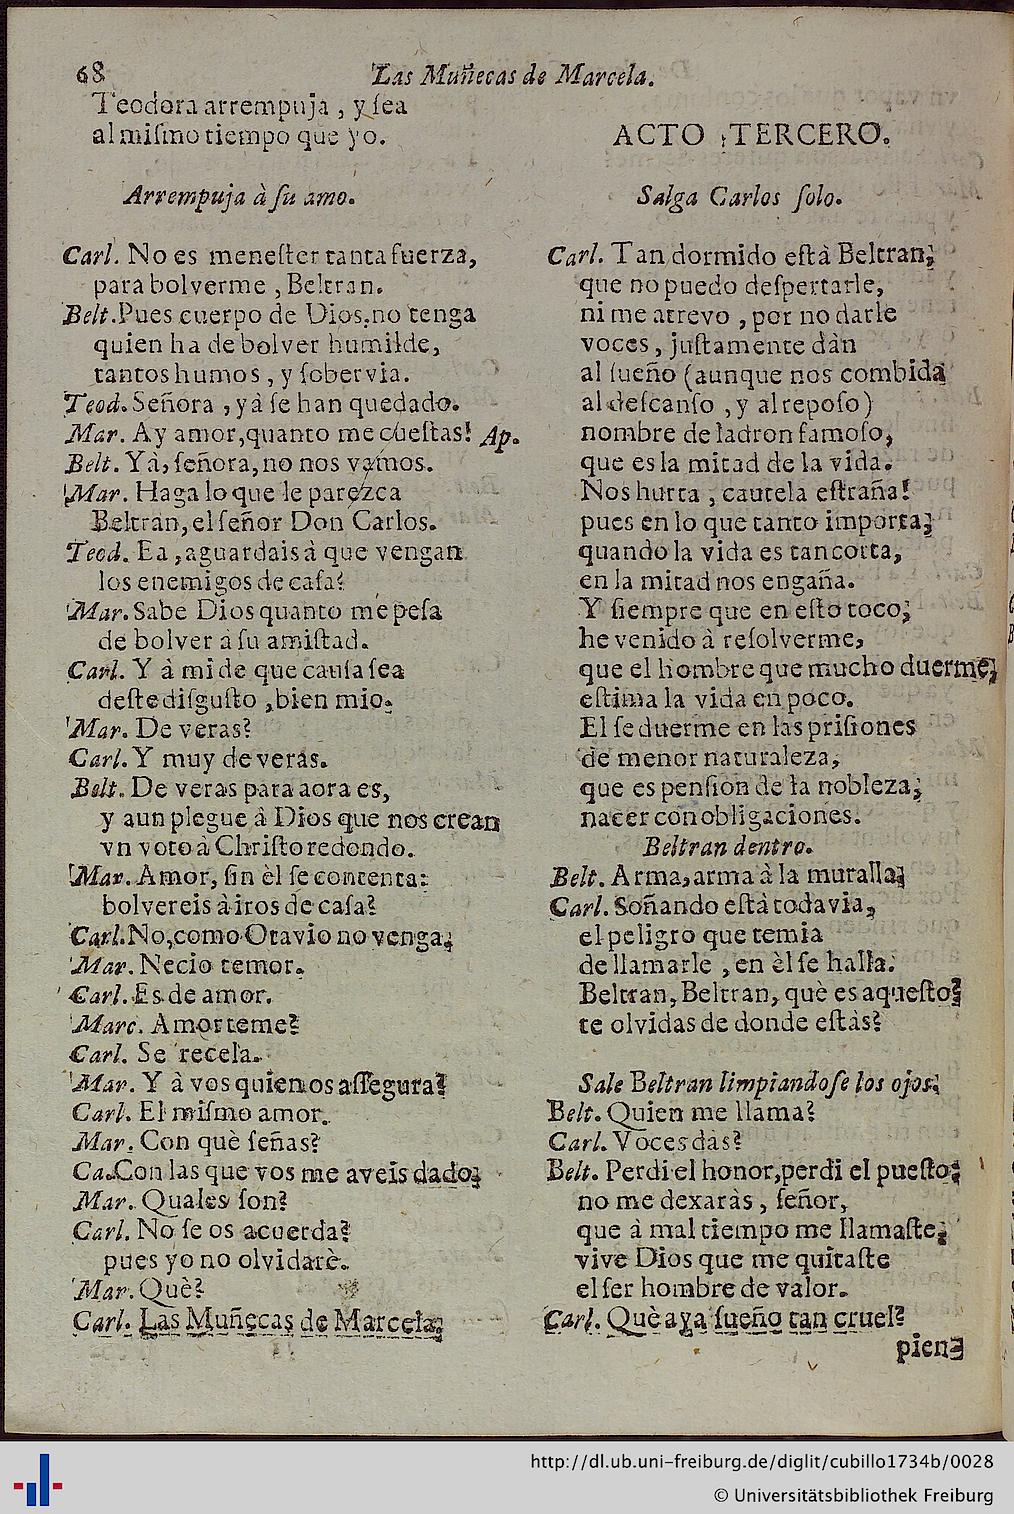 68
Las Muñecas de Marcela.
Teodora arrempuja, y ſea
al miſmo tiempo que yo.
Arrempuja à ſu amo.
Carl. No es meneſter tanta fuerza,
para bolverme, Beltran.
Belt. Pues cuerpo de Dios, no tenga
quien ha de bolver humilde,
tantos humos, y ſobervia.
Teod. Señora, yà ſe han quedado.
Mar. Ay amor, quanto me cueſtas! Ap.
Belt. Yà, ſeñora, no nos vamos.
Mar. Haga lo que le parezca
Beltran, el ſeñor Don Carlos.
Teod. Ea, aguardais à que vengan
los enemigos de caſa?
Mar. Sabe Dios quanto me peſa
de bolver à ſu amiſtad.
Carl. Y à mi de que cauſa ſea
deſte diſguſto, bien mio.
Mar. De veras?
Carl. Y muy de veras.
Belt. De veras para aora es,
y aun plegue à Dios que nos crean
vn voto à Chriſto redondo.
Mar. Amor, ſin èl ſe contenta:
bolvereis à iros de caſa?
Carl. No, como Otavio no venga;
Mar. Necio temor.
Carl. Es de amor.
Marc. Amor teme?
Carl. Se recela.
Mar. Y à vos quien os aſſegura?
Carl. El miſmo amor.
Mar. Con què ſeñas?
Ca. Con las que vos me aveis dado;
Mar. Quales ſon?
Carl. No ſe os acuerda?
pues yo no olvidarè.
Mar. Què?
Carl. Las Muñecas de Marcela;
ACTO TERCERO.
Salga Carlos ſolo.
Carl. Tan dormido eſtà Beltran;
que no puedo deſpertarle,
ni me atrevo, por no darle
voces, juſtamente dàn
al ſueño (aunque nos combida
al deſcanſo, y al repoſo)
nombre de ladron famoſo,
que es la mitad de la vida.
Nos hurta, cautela eſtraña!
pues en lo que tanto importa;
quando la vida es tan corta,
en la mitad nos engaña.
Y ſiempre que en eſto toco;
he venido à reſolverme,
que el hombre que mucho duerme;
eſtima la vida en poco.
El ſe duerme en las priſiones
de menor naturaleza,
que es penſion de la nobleza;
nacer con obligaciones.
Beltran dentro.
Belt. Arma, arma à la muralla;
Carl. Soñando eſtà todavia,
el peligro que temia
de llamarle, en èl ſe halla.
Beltran, Beltran, què es aqueſto?
te olvidas de donde eſtàs?
Sale Beltran limpiandoſe los ojos.
Belt. Quien me llama?
Carl. Voces dàs?
Belt. Perdi el honor, perdi el pueſto;
no me dexaràs, ſeñor,
que à mal tiempo me llamaſte;
vive Dios que me quitaſte
el ſer hombre de valor.
Carl. Què aya ſueño tan cruel?
pien-
http://dl.ub.uni-freiburg.de/diglit/cubillo1734b/0028
© Universitätsbibliothek Freiburg